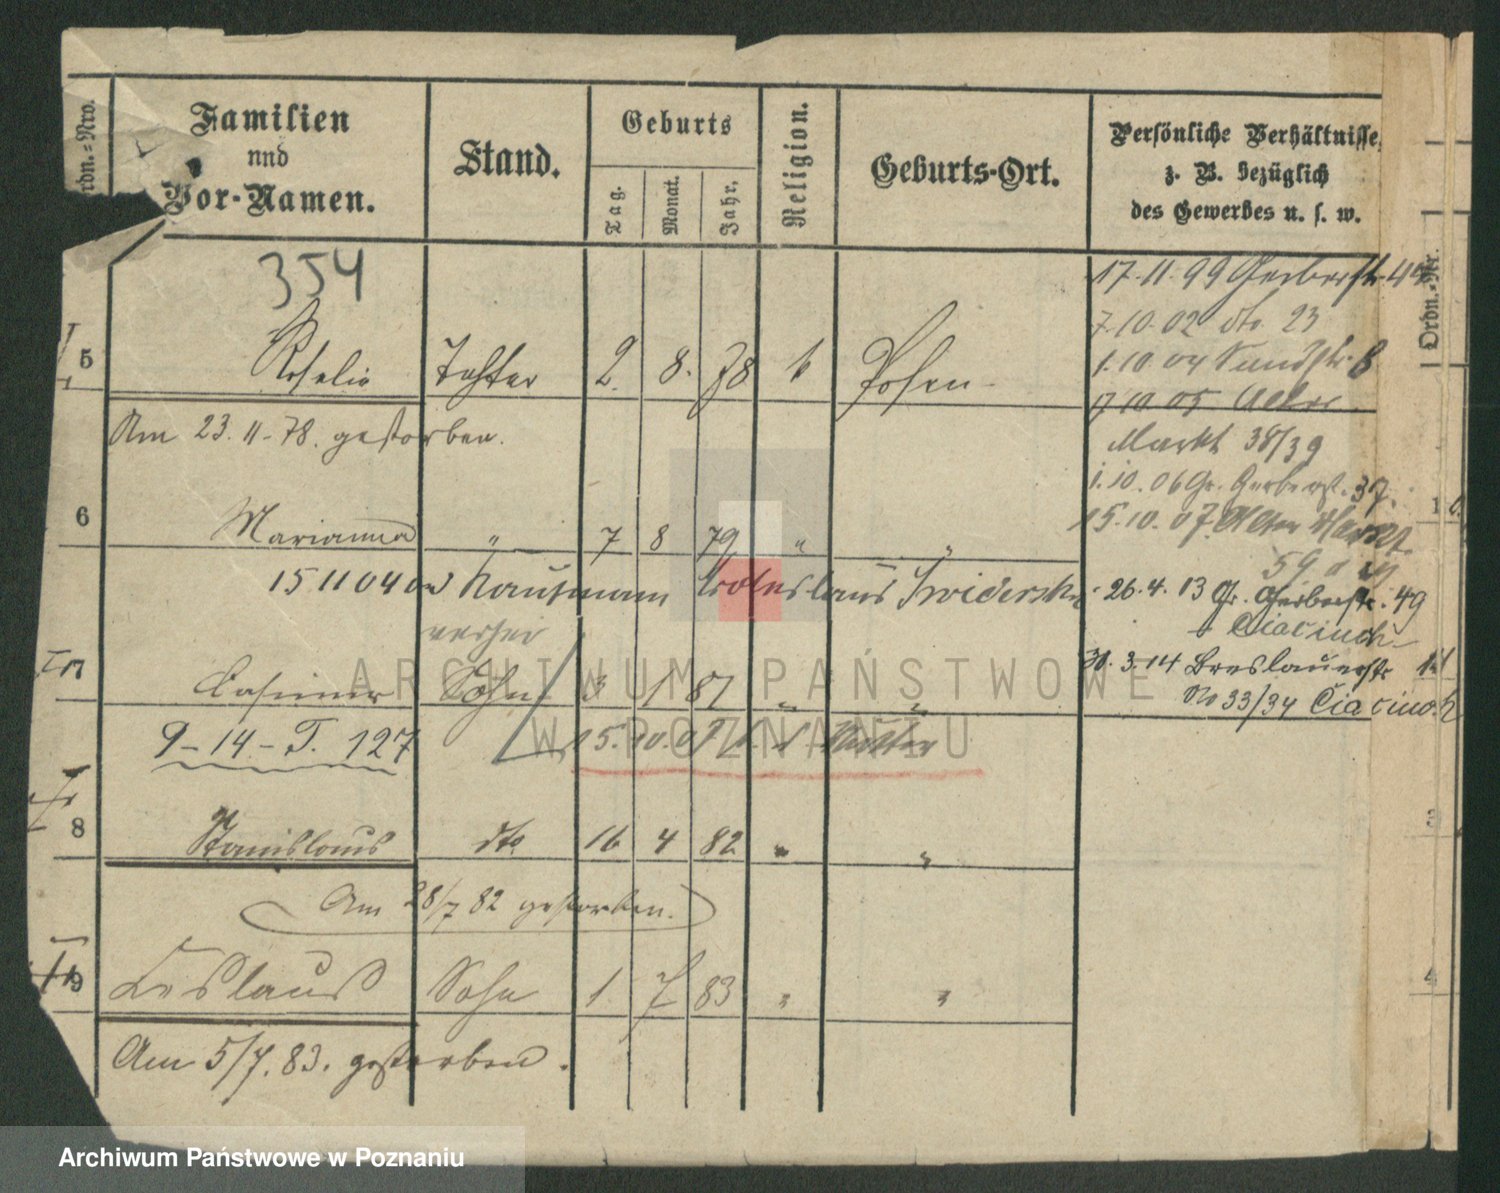 Ordn.-Nro.
Familien
und
Vor-Namen.
Stand.
Geburts
Tag.
Monat.
Jahr.
Religion.
Geburts-Ort.
Persönliche Verhältnisse,
z. B. bezüglich
des Gewerbes u. s. w.
Ordn.-Nr.
354
17.11.99 Gerberstr. 44
7.10.02 dto 23
5 Roselie Tochter 2. 8. 78 k Posen
1.10.04 8
17 10 05 Alter
Markt 38/39
Am 23.11.78. gestorben.
1.10.06 Gr. Gerberst. 37.
6 Marianna " 7 8 79 " "
15.10.07. Alter Markt
15 11 04 Kaufmann Swiderski
26.4.13 Gr. Gerberstr. 49
verhei
30.3.14 Breslauerstr
7 Casimir Sohn 3 87 " "
No 33/34
9-14-T. 127
15.10.07 Mutter
8 Stanislaus dto 16 4 82 " "
Am 28/7 82 gestorben.
9 Leslaus Sohn 1 7 83 " "
Am 5/7. 83. gestorben.
ARCHIWUM PAŃSTWOWE
W POZNANIU
Archiwum Państwowe w Poznaniu